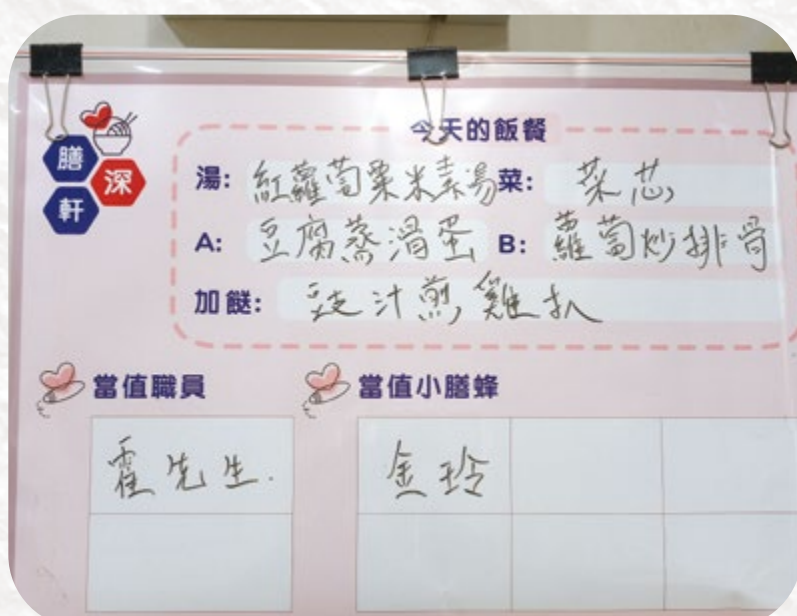 膳
深
軒
今天的飯餐
湯: 紅蘿蔔粟米素湯 菜: 菜芯
A: 豆腐蒸滑蛋 B: 蘿蔔炆排骨
加餸: 豉汁煎雞扒
當值職員 當值小膳蜂
霍先生. 金玲